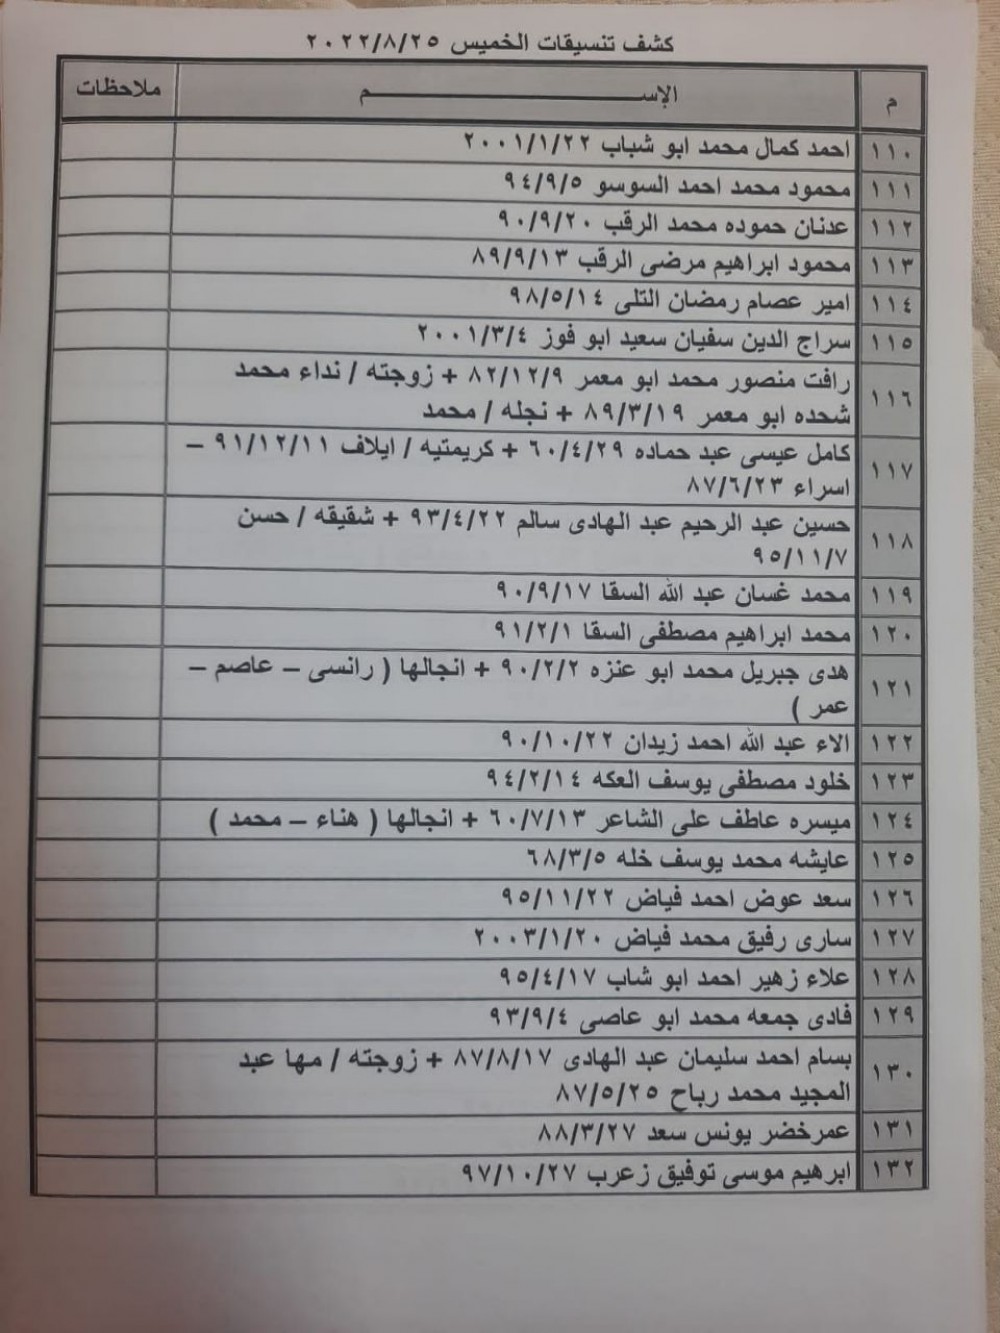 كشف تنسيقات الخميس ٢٠٢٢/٨/٢٥
م الإســـــــــم ملاحظات
١١٠ احمد كمال محمد ابو شباب ٢٠٠١/١/٢٢
١١١ محمود محمد احمد السوسو ٩٤/٩/٥
١١٢ عدنان حموده محمد الرقب ٩٠/٩/٢٠
١١٣ محمود ابراهيم مرضى الرقب ٨٩/٩/١٣
١١٤ امير عصام رمضان التلى ٩٨/٥/١٤
١١٥ سراج الدين سفيان سعيد ابو فوز ٢٠٠١/٣/٤
١١٦ رافت منصور محمد ابو معمر ٨٢/١٢/٩ + زوجته / نداء محمد
شحده ابو معمر ٨٩/٣/١٩ + نجله / محمد
١١٧ كامل عيسى عبد حماده ٦٠/٤/٢٩ + كريمتيه / ايلاف ٩١/١٢/١١ –
اسراء ٨٧/٦/٢٣
١١٨ حسين عبد الرحيم عبد الهادى سالم ٩٣/٤/٢٢ + شقيقه / حسن
٩٥/١١/٧
١١٩ محمد غسان عبد الله السقا ٩٠/٩/١٧
١٢٠ محمد ابراهيم مصطفى السقا ٩١/٢/١
١٢١ هدى جبريل محمد ابو عنزه ٩٠/٢/٢ + انجالها ( رانسى – عاصم –
عمر )
١٢٢ الاء عبد الله احمد زيدان ٩٠/١٠/٢٢
١٢٣ خلود مصطفى يوسف العكه ٩٤/٢/١٤
١٢٤ ميسره عاطف على الشاعر ٦٠/٧/١٣ + انجالها ( هناء – محمد )
١٢٥ عايشه محمد يوسف خله ٦٨/٣/٥
١٢٦ سعد عوض احمد فياض ٩٥/١١/٢٢
١٢٧ سارى رفيق محمد فياض ٢٠٠٣/١/٢٠
١٢٨ علاء زهير احمد ابو شاب ٩٥/٤/١٧
١٢٩ فادى جمعه محمد ابو عاصى ٩٣/٩/٤
١٣٠ بسام احمد سليمان عبد الهادى ٨٧/٨/١٧ + زوجته / مها عبد
المجيد محمد رباح ٨٧/٥/٢٥
١٣١ عمرخضر يونس سعد ٨٨/٣/٢٧
١٣٢ ابرهيم موسى توفيق زعرب ٩٧/١٠/٢٧